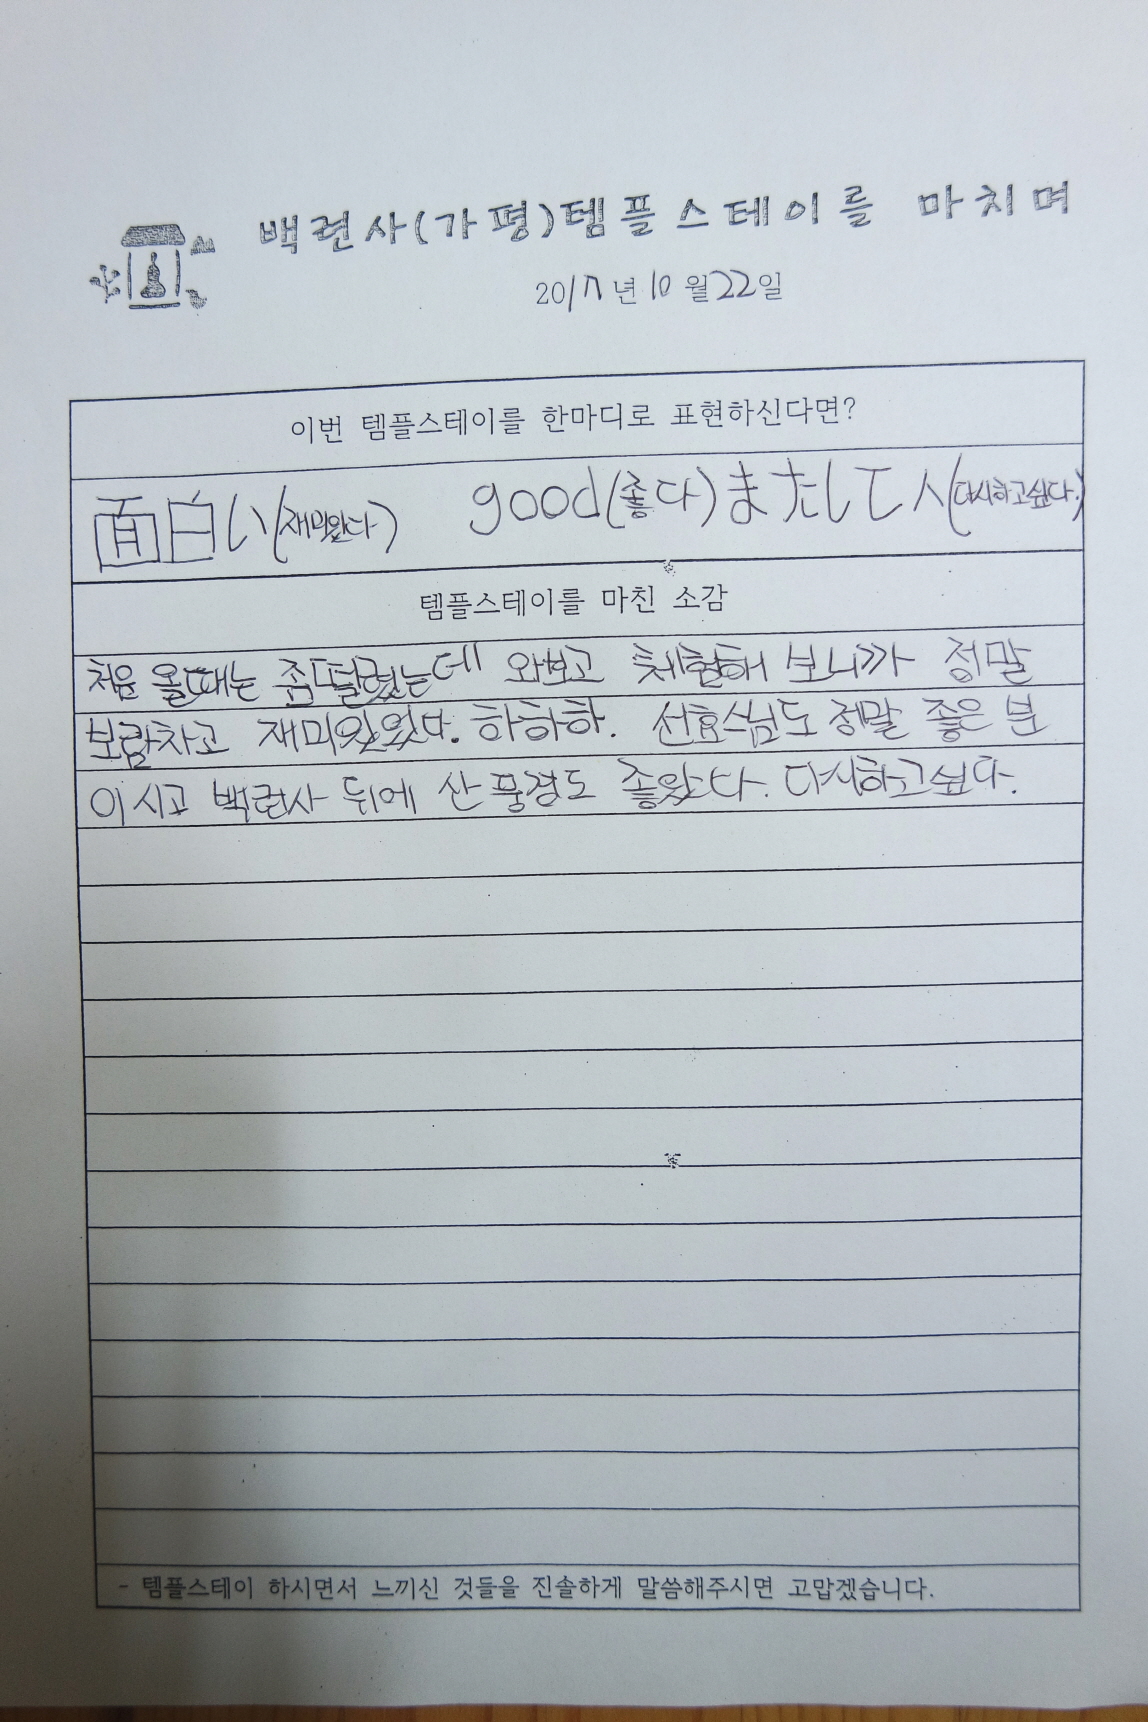 백련사(가평)템플스테이를 마치며
2017년 10월 22일
이번 템플스테이를 한마디로 표현하신다면?
面白い(재미있다) good(좋다) またして人(다시하고싶다.)
템플스테이를 마친 소감
처음 올때는 좀 떨렸는데 와보고 체험해 보니까 정말
보람차고 재미있었다. 하하하. 선효스님도 정말 좋은 분
이시고 백련사 뒤에 산 풍경도 좋았다. 다시하고싶다.
- 템플스테이 하시면서 느끼신 것들을 진솔하게 말씀해주시면 고맙겠습니다.